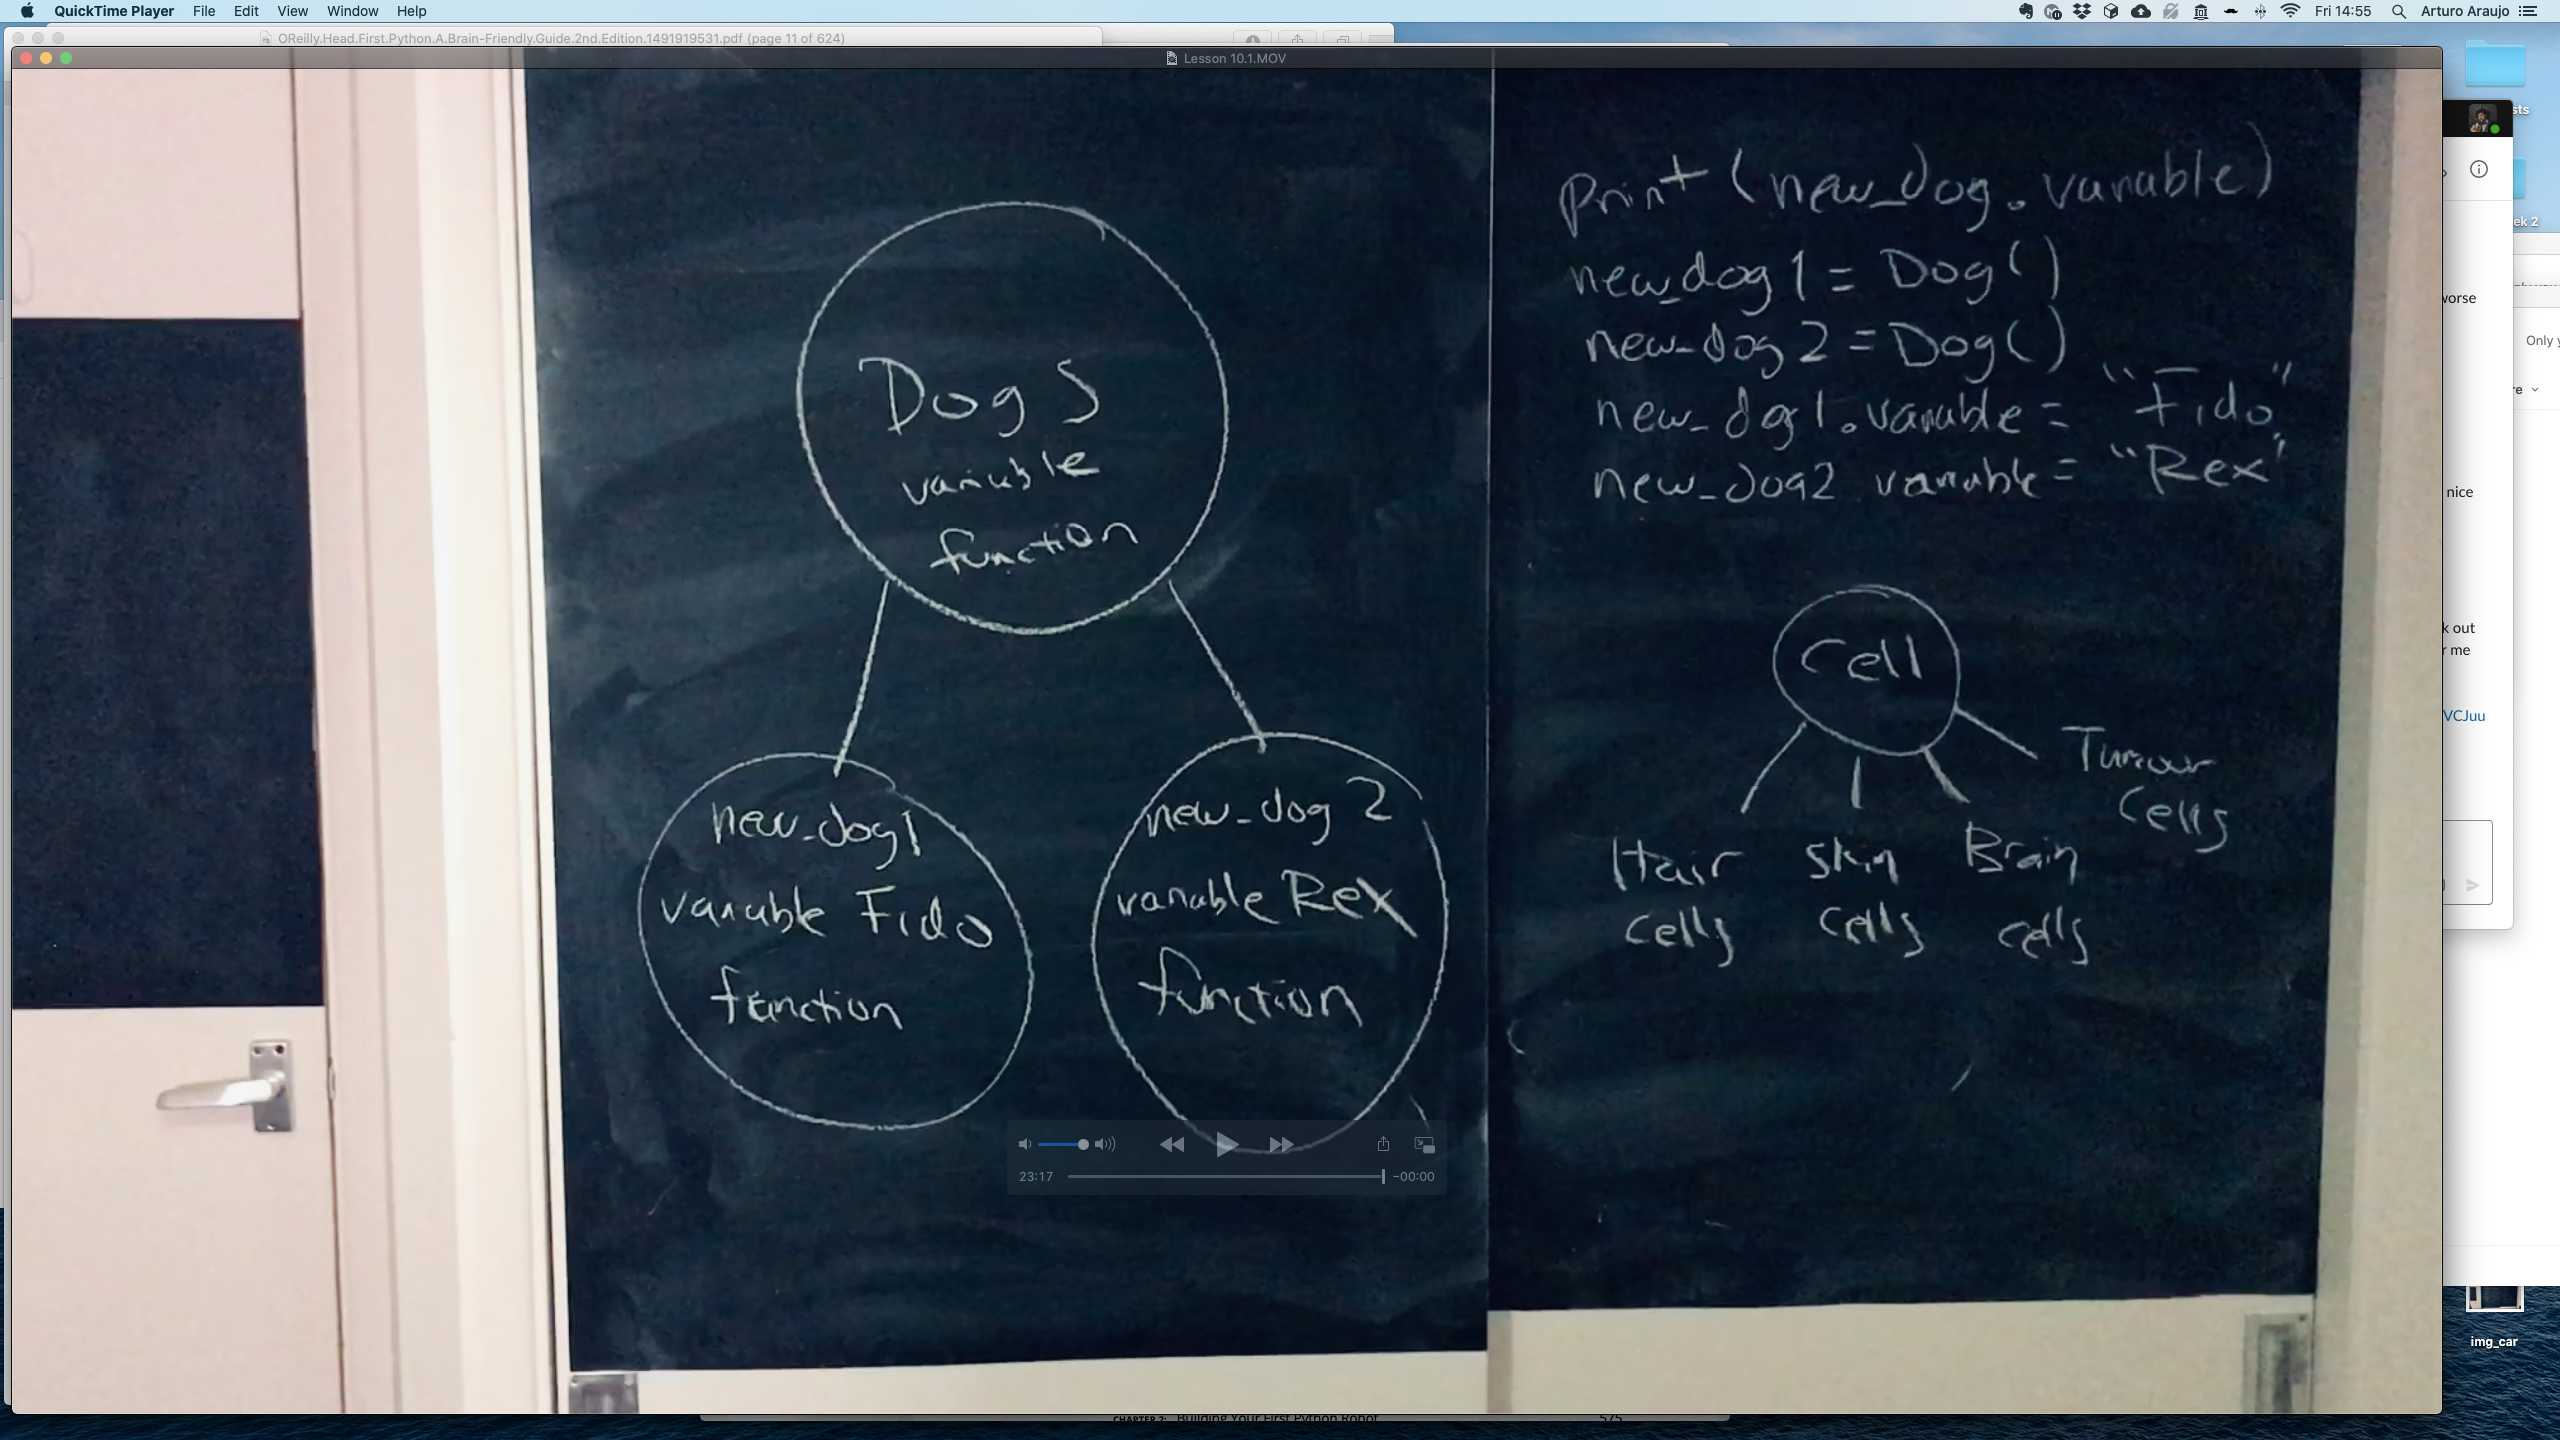 QuickTime Player File Edit View Window Help
Fri 14:55 Arturo Araujo
OReilly.Head.First.Python.A.Brain-Friendly.Guide.2nd.Edition.1491919531.pdf (page 11 of 624)
Lesson 10.1.MOV
Dogs
variable
function
new_dog1
variable Fido
function
new_dog 2
variable Rex
function
print (new_dog.variable)
new_dog1 = Dog()
new_dog2 = Dog()
new_dog1.variable = "Fido"
new_dog2 variable = "Rex"
Cell
Hair
cells
Skin
cells
Brain
cells
Tumour
cells
23:17
-00:00
sts
ek 2
worse
Only y
re
nice
k out
r me
VCJuu
img_car
CHAPTER 2: Building Your First Python Robot 575